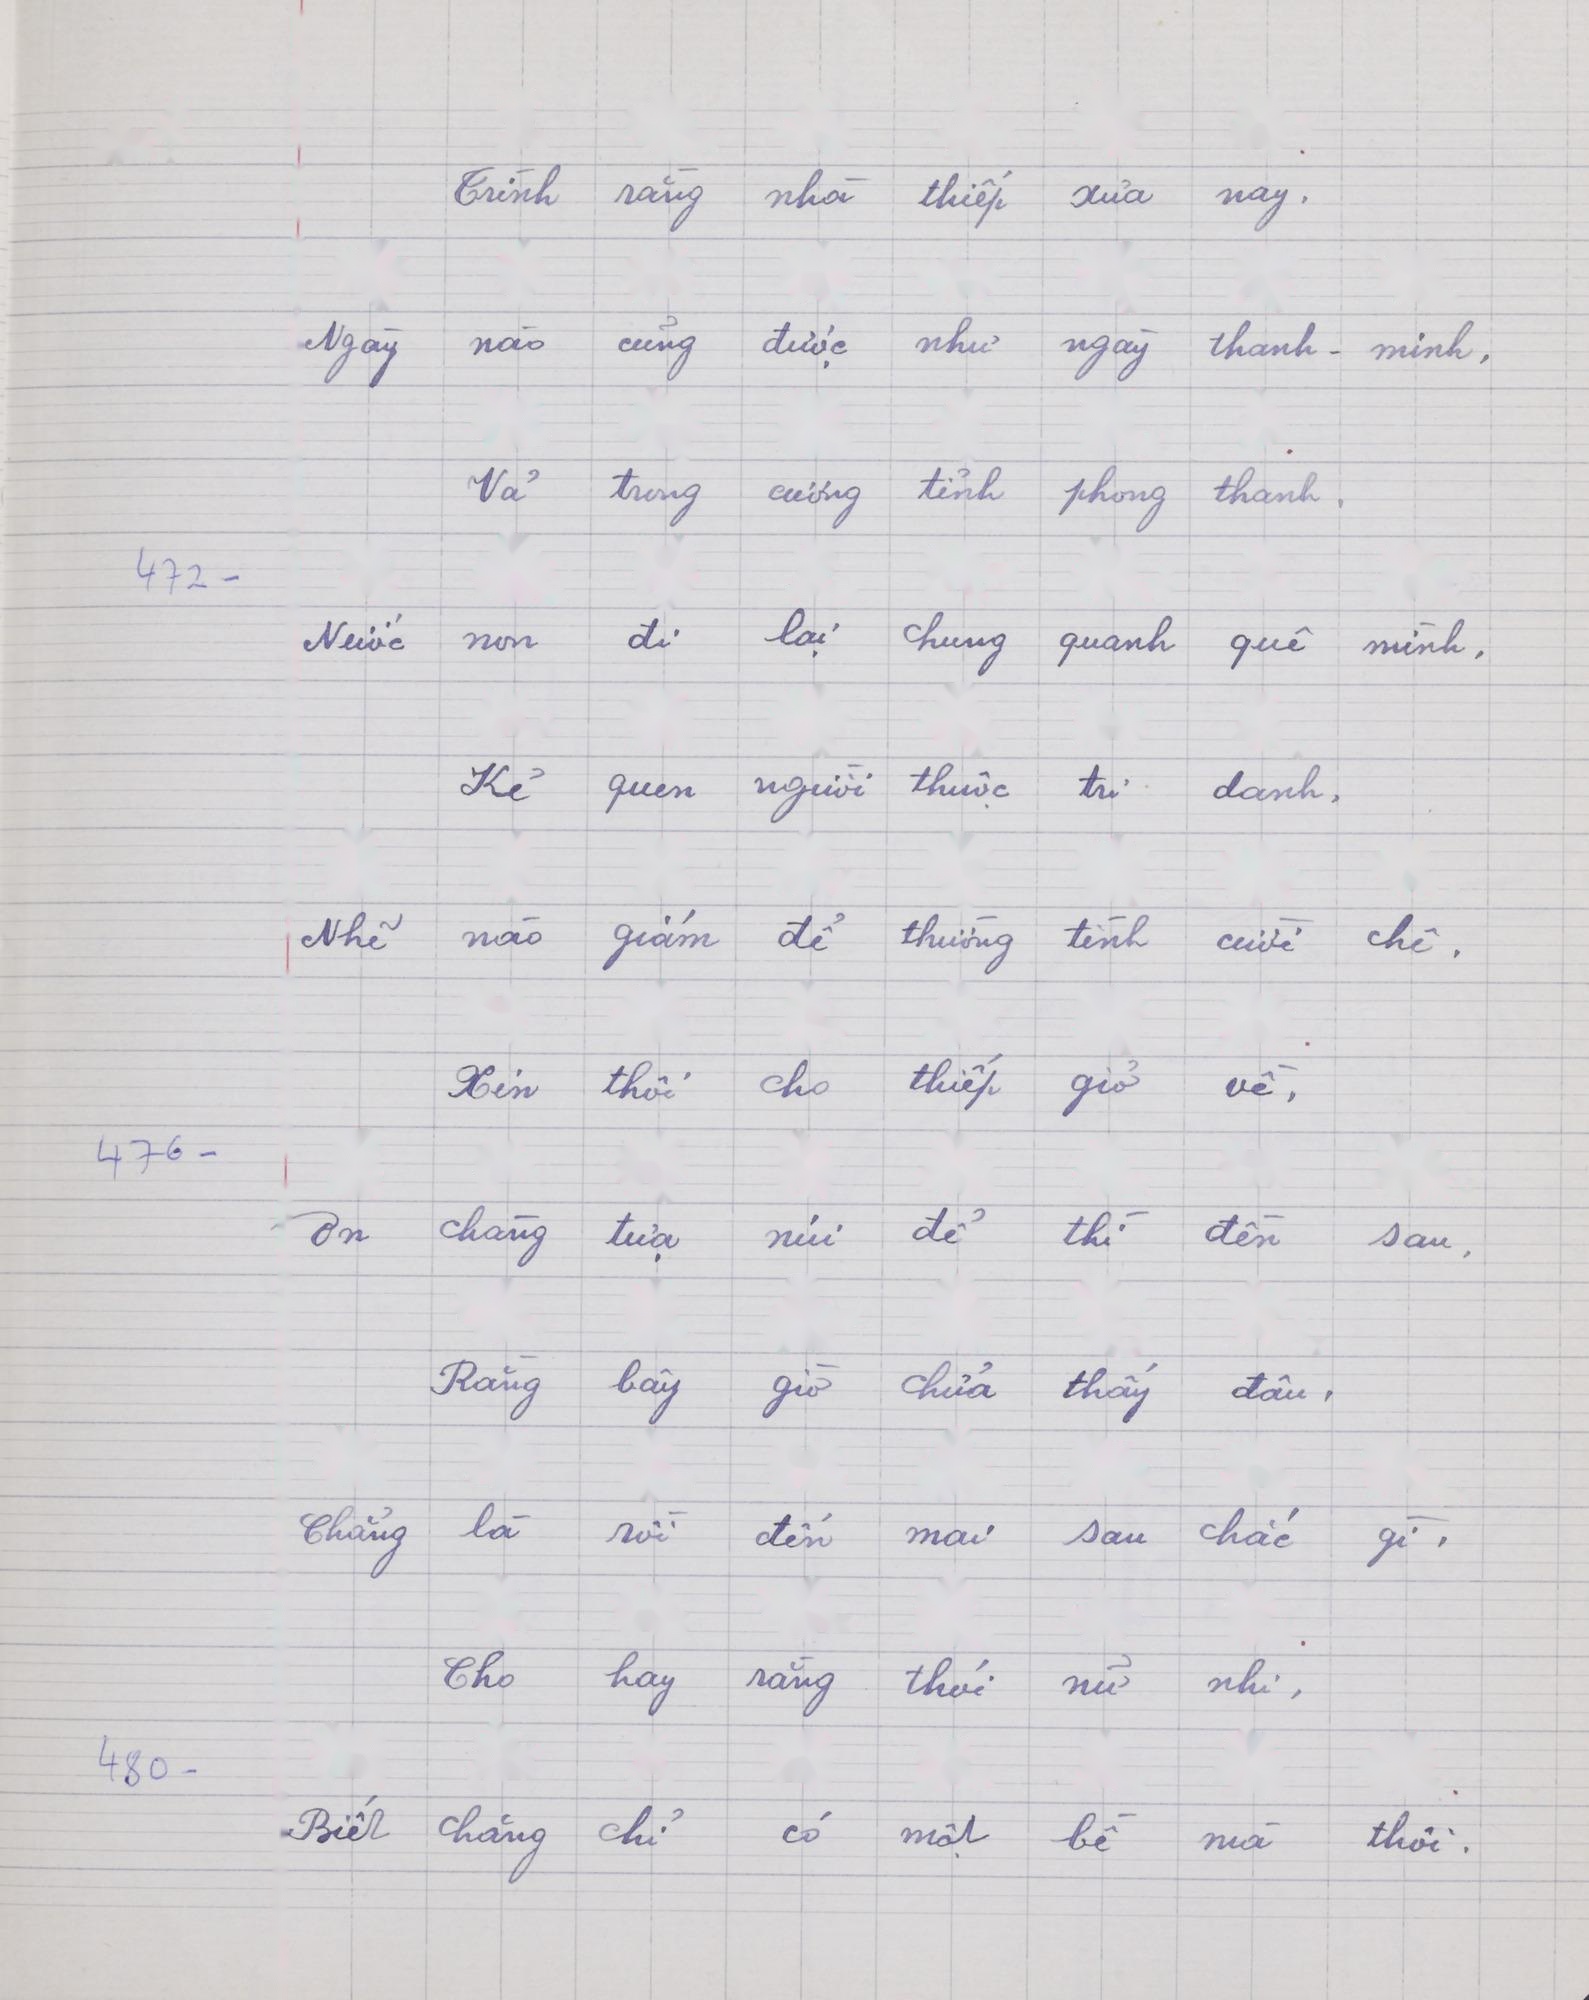 Trình rằng nhà thiếp xưa nay.
Ngày nào cũng được như ngày thanh - minh,
Vả trong cương tỉnh phong thanh.
472 -
Nước non đi lại chung quanh quê mình,
Kẻ quen người thuộc tri danh,
Nhẽ nào giám để thường tình cười chê.
Xin thôi cho thiếp giở về,
476 -
Ơn chàng tựa núi để thì đền sau,
Rằng bây giờ chửa thấy đâu,
Chẳng là rồi đến mai sau chắc gì,
Cho hay rằng thói nữ nhi,
480 -
Biết chăng chỉ có một bề mà thôi.